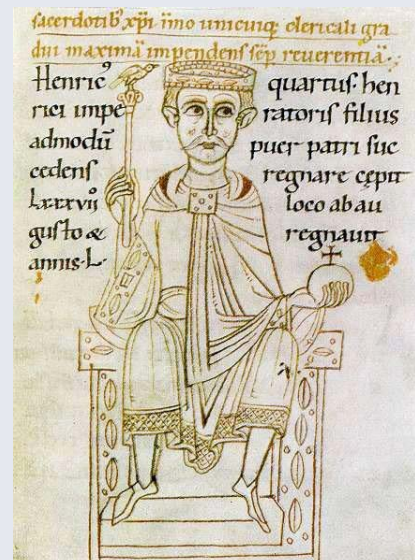 sacerdotib' xp̄i· īmo unicuiq; clericali gra
dui maximā impendens sēp reuerentiā·:
Henric' quartus· hen
rici impe ratoris filius
admodū puer patri suc
cedens regnare cępit
Lxxxvii° loco ab au
gusto & regnauit
annis· L·